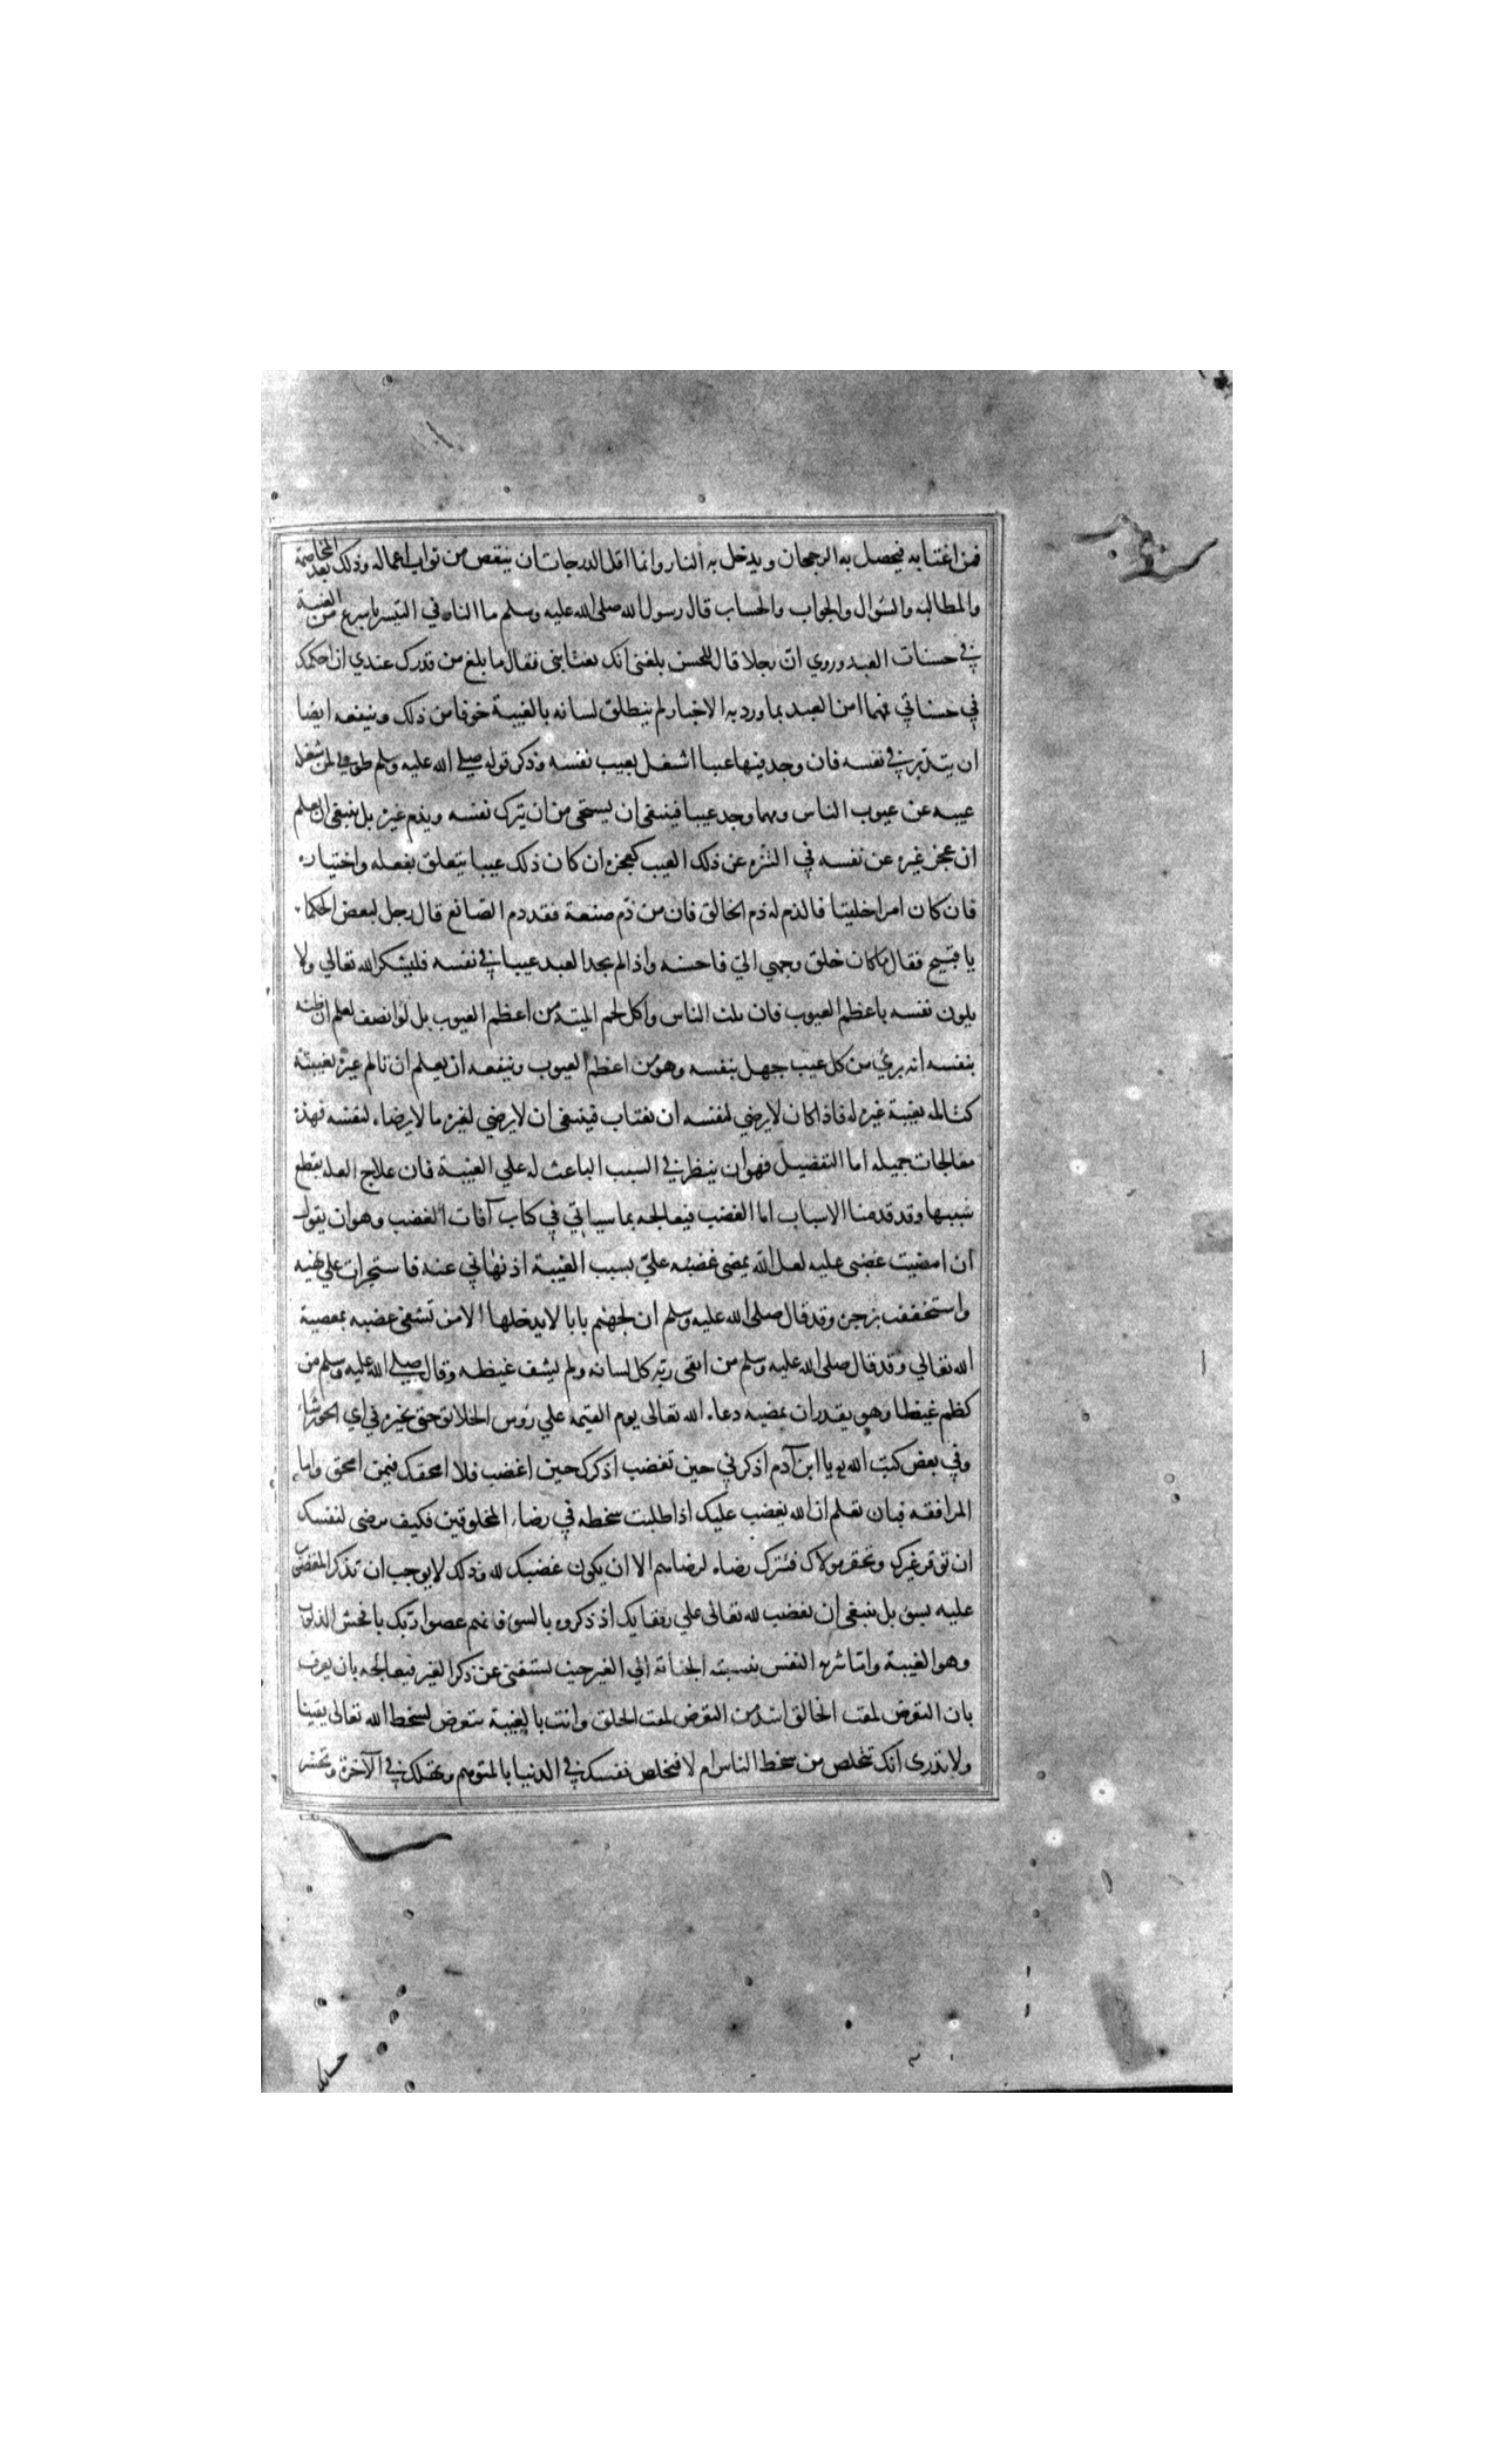 فمن اغتابه فيحصل به الرجحان ويدخل به النار وانما اقل الدرجات ان ينقص من ثواب اعماله وذلك بعد المخاصمة
والمطالبه والسؤال والجواب والحساب قال رسول الله صلى الله عليه وسلم ما النار في التيسر باسرع من الغيبة
في حسنات العبد وروي ان رجلا قال للحسن بلغني انك تغتابني فقال ما بلغ من قدرك عندي ان احكمك
في حسناتي فمهما امن العبد بما ورد به الاخبار لم ينطلق لسانه بالغيبة خوفا من ذلك وينفعه ايضا
ان يتدبر في نفسه فان وجد فيها عيبا اشغل بعيب نفسه وذكر قوله صلى الله عليه وسلم طوبى لمن شغله
عيبه عن عيوب الناس ومهما وجد عيبا فينبغي ان يستحي من ان يترك نفسه ويذم غيره بل ينبغي ان يعلم
ان عجز غيره عن نفسه في التنزه عن ذلك العيب كعجزه ان كان ذلك عيبا يتعلق بفعله واختياره
فان كان امرا خلقيا فالذم له ذم الخالق فان من ذم صنعة فقد ذم الصانع قال رجل لبعض الحكماء
يا قبيح فقال ما كان خلق وجهي الي فاحسنه واذا لم يجد العبد عيبا في نفسه فليشكر الله تعالي ولا
يلوث نفسه باعظم العيوب فان ثلث الناس واكل لحم الميتة من اعظم العيوب بل لو انصف لعلم ان ظنه
بنفسه انه بري من كل عيب جهل بنفسه وهو من اعظم العيوب وينفعه ان يعلم ان تالم غيره بغيبته
كتالمه بغيبة غيره له فاذا كان لا يرضي لنفسه ان يغتاب فينبغي ان لا يرضي لغيره ما لا يرضاه لنفسه فهذه
معالجات جميله اما التفضيل فهو ان ينظر في السبب الباعث له علي الغيبة فان علاج العلة بقطع
سببها وقد قدمنا الاسباب اما الغضب فيعالجه بما سياتي في كتاب آفات الغضب وهو ان يقول
ان امضيت غضبي عليه لعل الله يمضي غضبه علي بسبب الغيبة اذ نهاني عنه فاستجرات علي نهيه
واستخففت بزجره وقد قال صلى الله عليه وسلم ان لجهنم بابا لا يدخلها الا من تشفى غضبه بمعصية
الله تعالي وقد قال صلى الله عليه وسلم من اتقى ربه كل لسانه ولم يشف غيظه وقال صلى الله عليه وسلم من
كظم غيظا وهو يقدر ان يمضيه دعاه الله تعالى يوم القيمه علي رؤس الخلائق حتى يخيره في اي الحور شاء
وفي بعض كتب الله يا ابن آدم اذكرني حين تغضب اذكرك حين اغضب فلا امحقك فيمن امحق واما
المرافقه فبان تعلم ان الله يغضب عليك اذا طلبت سخطه في رضاء المخلوقين فكيف ترضى لنفسك
ان توقر غيرك وتحقر مولاك فتترك رضاه لرضاهم الا ان يكون غضبك لله وذلك لا يوجب ان تذكر المغضوب
عليه بسوء بل ينبغي ان تغضب لله تعالى علي رفقايك اذ ذكروه بالسوء فانهم عصوا ربك بافحش الذنوب
وهو الغيبة واما تنزيه النفس بنسبته الجناية الي الغير حيث يستغنى عن ذكر الغير فيعالجه بان يعرف
بان التعرض لمقت الخالق اشد من التعرض لمقت الخلق وانت بالغيبة متعرض لسخط الله تعالى يقينا
ولا تدرى انك تتخلص من سخط الناس ام لا فتخلص نفسك في الدنيا بالمتوهم وتهلك في الآخرة وتخسر